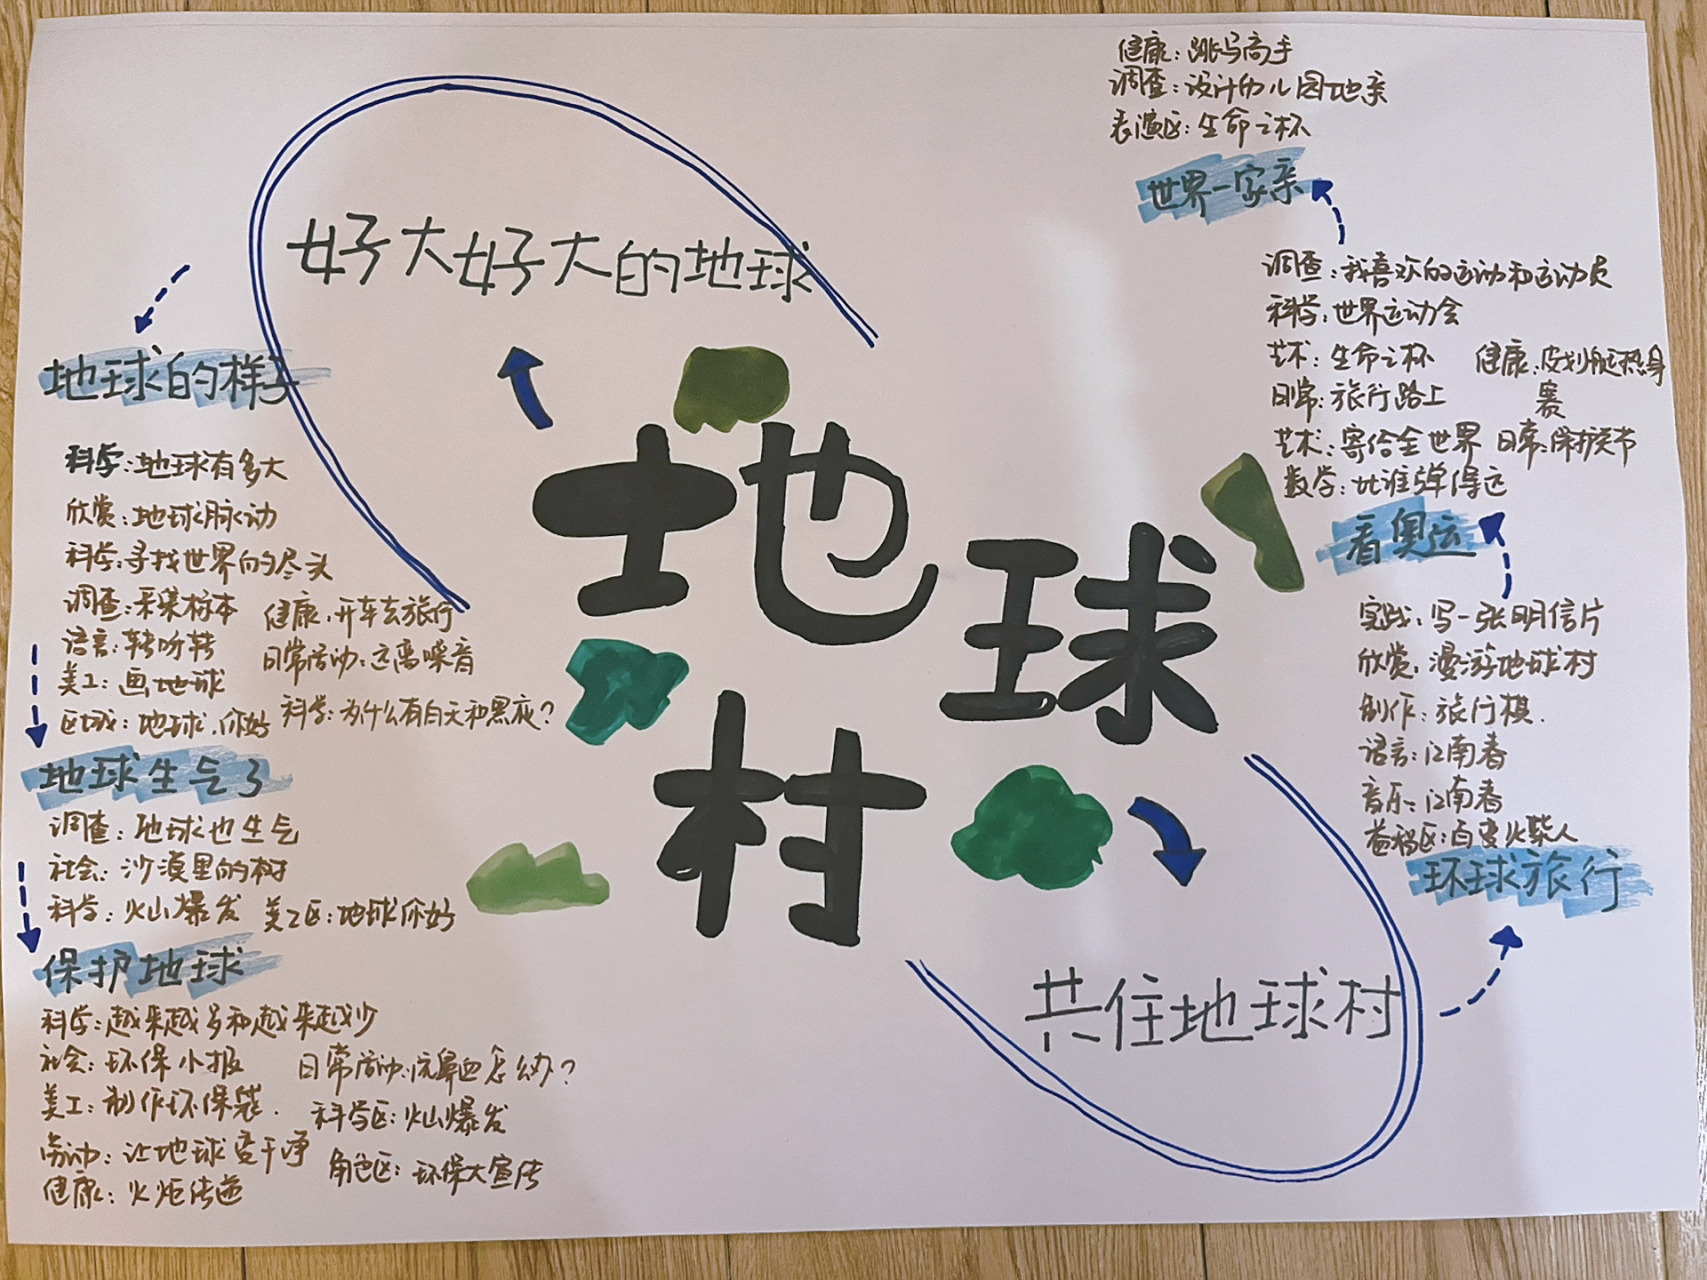 地球村
好大好大的地球
地球的样子
科学:地球有多大
欣赏:地球脉动
科学:寻找世界的尽头
调查:采集标本
语言:转呀转
美工:画地球
区域:地球,你好
健康:开车去旅行
日常活动:远离噪音
科学:为什么有白天和黑夜?
地球生气了
调查:地球也生气
社会:沙漠里的树
科学:火山爆发
美工区:地球你好
保护地球
科学:越来越多和越来越少
社会:环保小报
美工:制作环保袋.
劳动:让地球变干净
健康:火炬传递
日常活动:流鼻血怎么办?
科学区:火山爆发
角色区:环保大宣传
共住地球村
环球旅行
实践:写一张明信片
欣赏:漫游地球村
制作:旅行棋.
语言:江南春
音乐:江南春
益智区:百变火柴人
看奥运
调查:我喜欢的运动和运动员
科学:世界运动会
艺术:生命之杯
健康:皮划艇热身
赛
日常:旅行路上
艺术:寄给全世界
日常:保护关节
数学:比谁弹得远
世界一家亲
健康:跳马高手
调查:设计幼儿园地
表演区:生命之杯